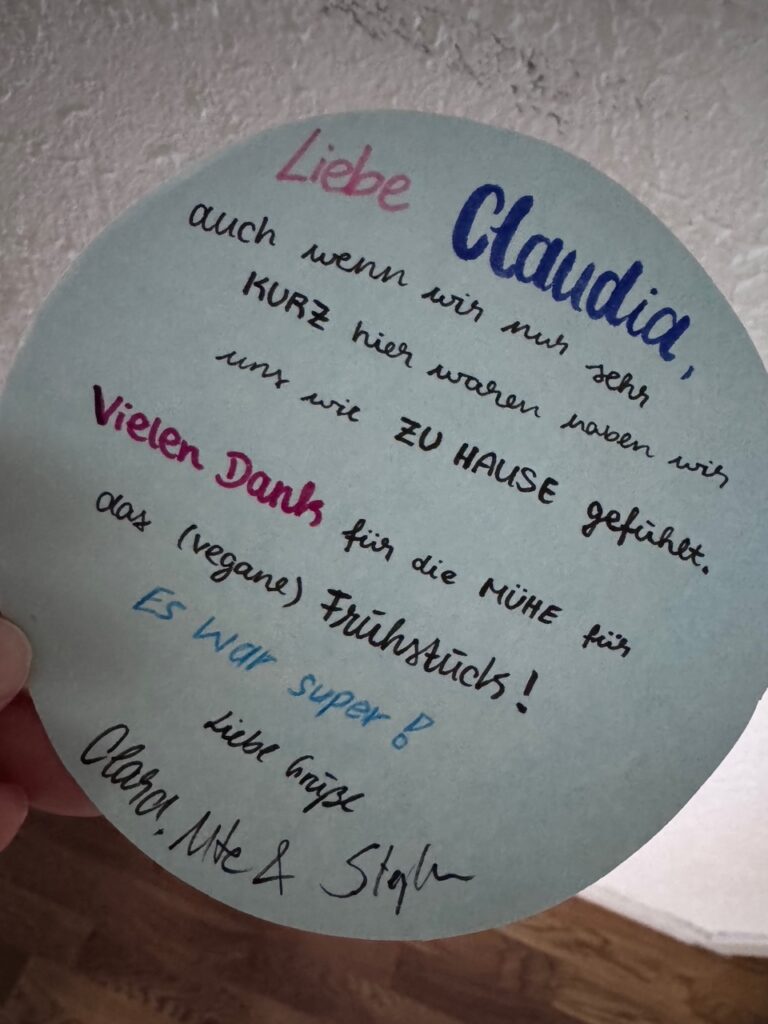 Liebe Claudia,
auch wenn wir nur sehr
KURZ hier waren haben wir
uns wie ZU HAUSE gefühlt.
Vielen Dank für die MÜHE für
das (vegane) Frühstück!
Es war super!
Liebe Grüße
Clara, Ute &